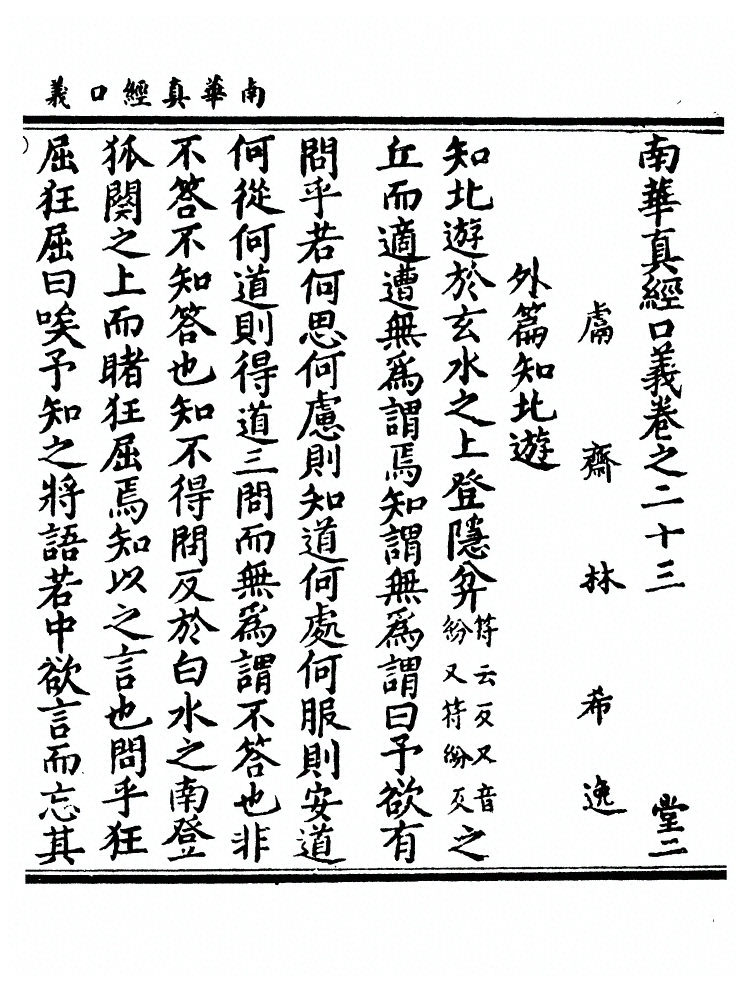 南華真經口義
南華真經口義卷之二十三 堂二
鬳齋林希逸
外篇知北遊
知北遊於玄水之上登隱弅符云反又音紛又符紛反之
丘而適遭無爲謂焉知謂無爲謂曰予欲有
問乎若何思何慮則知道何處何服則安道
何從何道則得道三問而無爲謂不答也非
不答不知答也知不得問反於白水之南登
狐闋之上而睹狂屈焉知以之言也問乎狂
屈狂屈曰唉予知之將語若中欲言而忘其